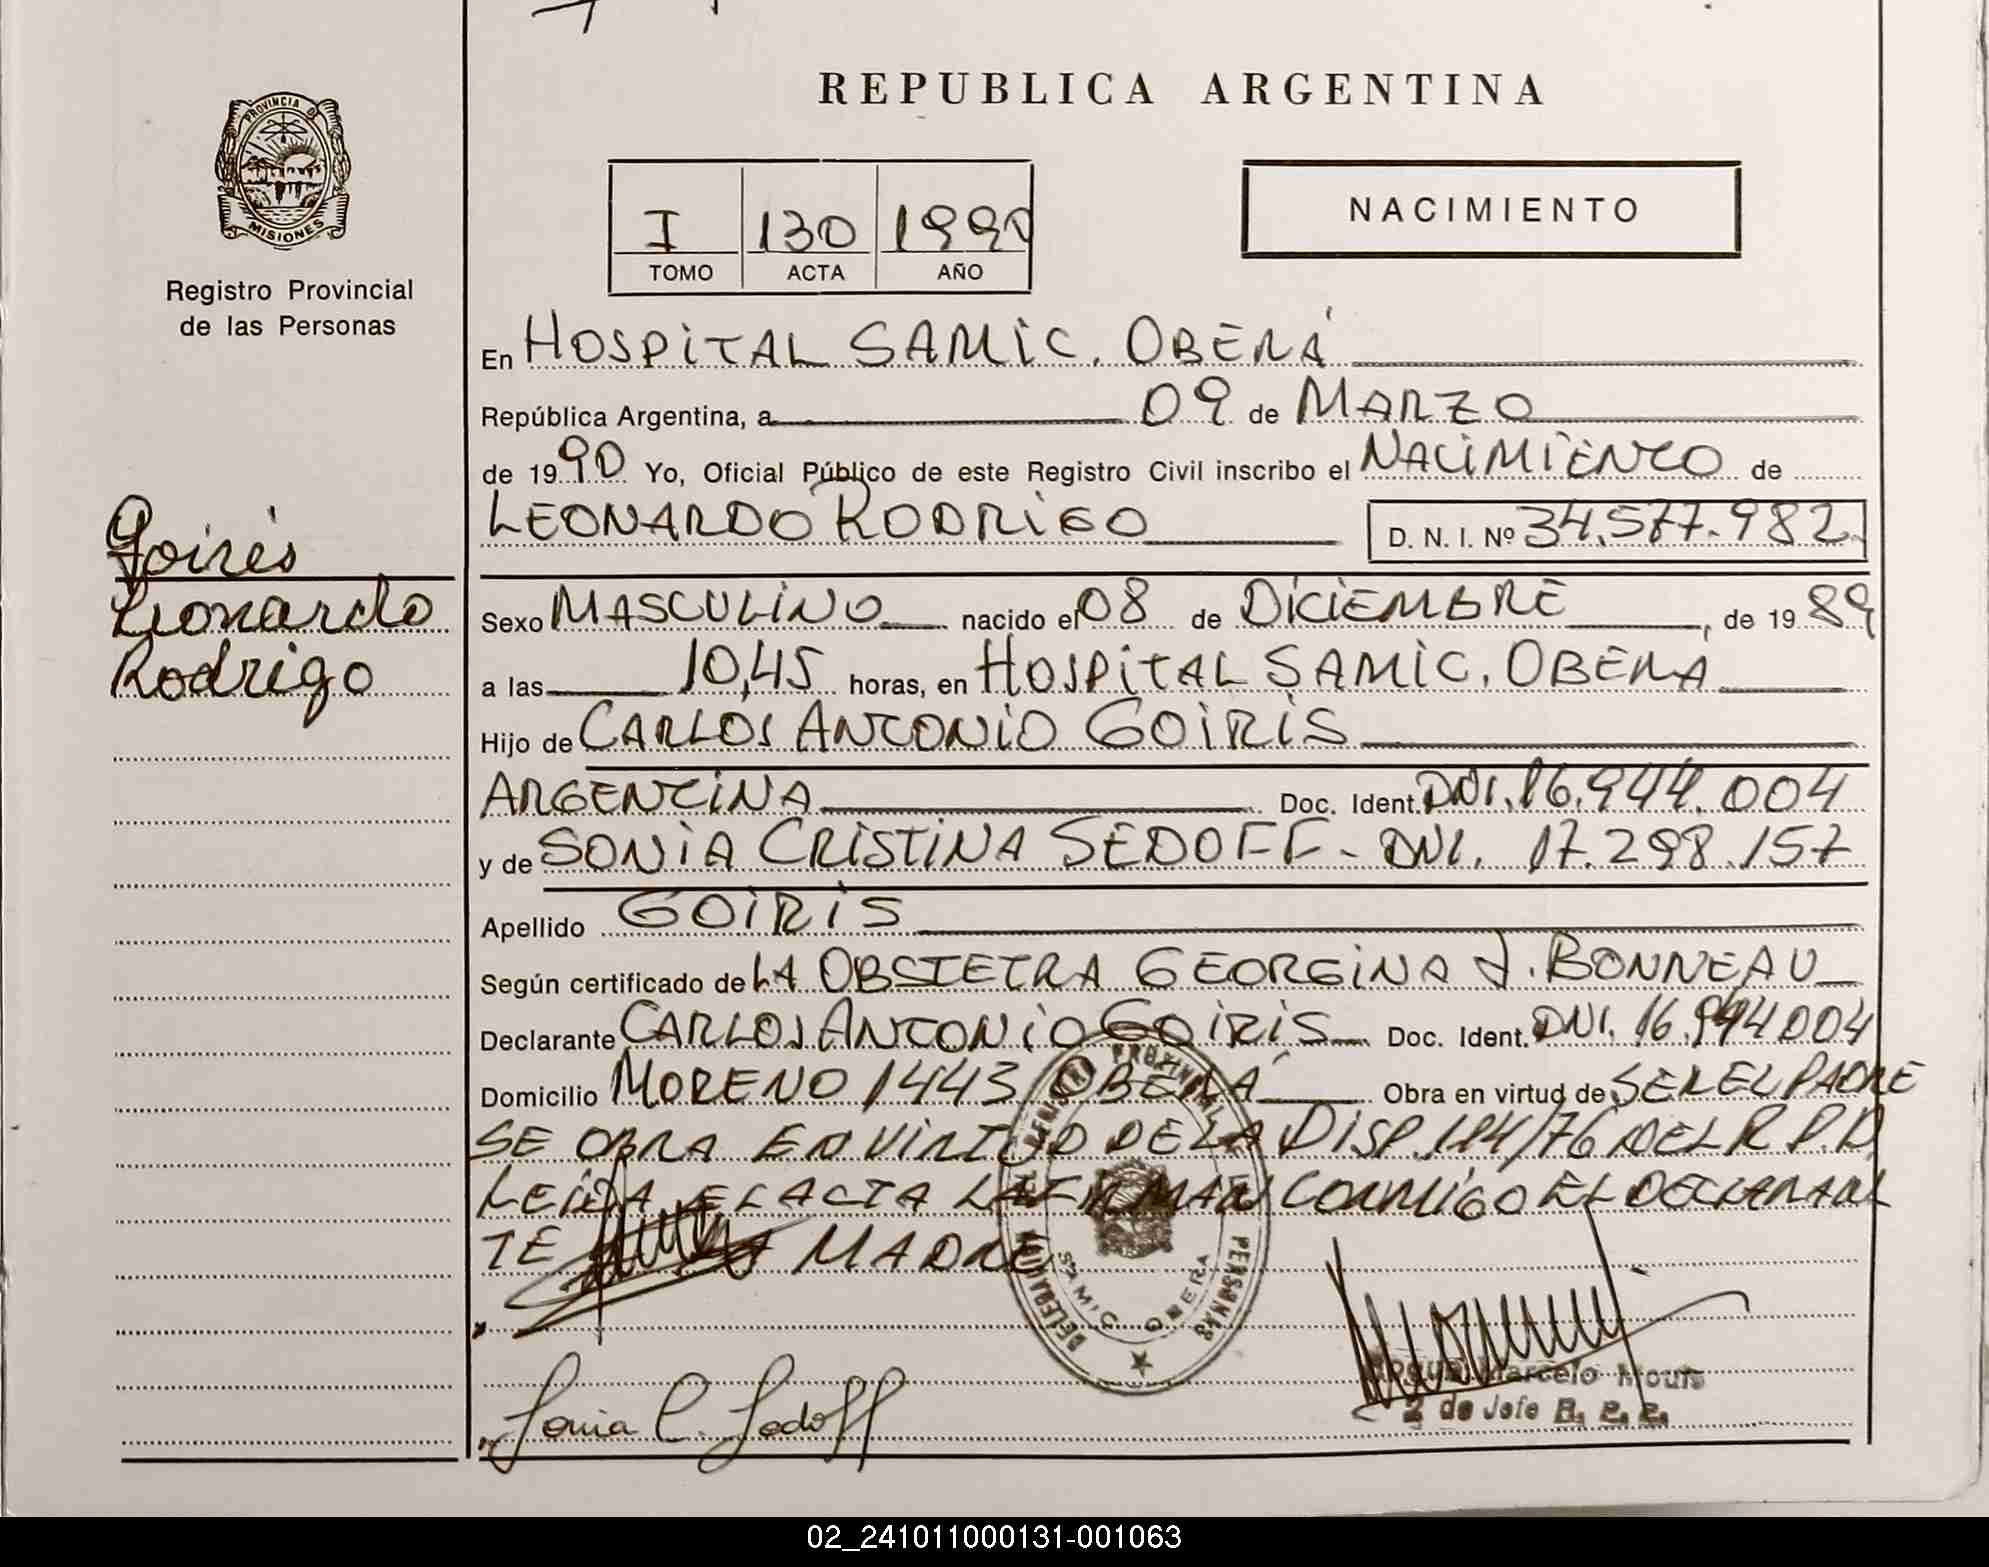 REPUBLICA ARGENTINA
PROVINCIA D
MISIONES
Registro Provincial
de las Personas
I 130 1990
TOMO ACTA AÑO
NACIMIENTO
En HOSPITAL SAMIC. OBERÁ
República Argentina, a 09 de MARZO
de 1990 Yo, Oficial Público de este Registro Civil inscribo el NACIMIENTO de
LEONARDO RODRIGO D. N. I. Nº 34.577.982
Goiris
Leonardo
Rodrigo
Sexo MASCULINO nacido el 08 de DICIEMBRE, de 1989
a las 10,45 horas, en HOSPITAL SAMIC. OBERA
Hijo de CARLOS ANTONIO GOIRIS
ARGENTINA Doc. Ident. DNI. 16.944.004
y de SONIA CRISTINA SEDOFF - DNI. 17.298.157
Apellido GOIRIS
Según certificado de LA OBSTETRA GEORGINA J. BONNEAU
Declarante CARLOS ANTONIO GOIRIS Doc. Ident. DNI. 16.944004
Domicilio MORENO 1443 OBERÁ Obra en virtud de SER EL PADRE
SE OBRA EN VIRTUD DE LA DISP. 114/76 DEL R.P.P.
LEIDA EL ACTA LA FIRMAN CONMIGO EL DECLARAN
TE MADRE
PERSONAS
SAMIC OBERA
Sonia C. Sedoff
Marcelo
2 do Jefe R. P. P.
02_241011000131-001063